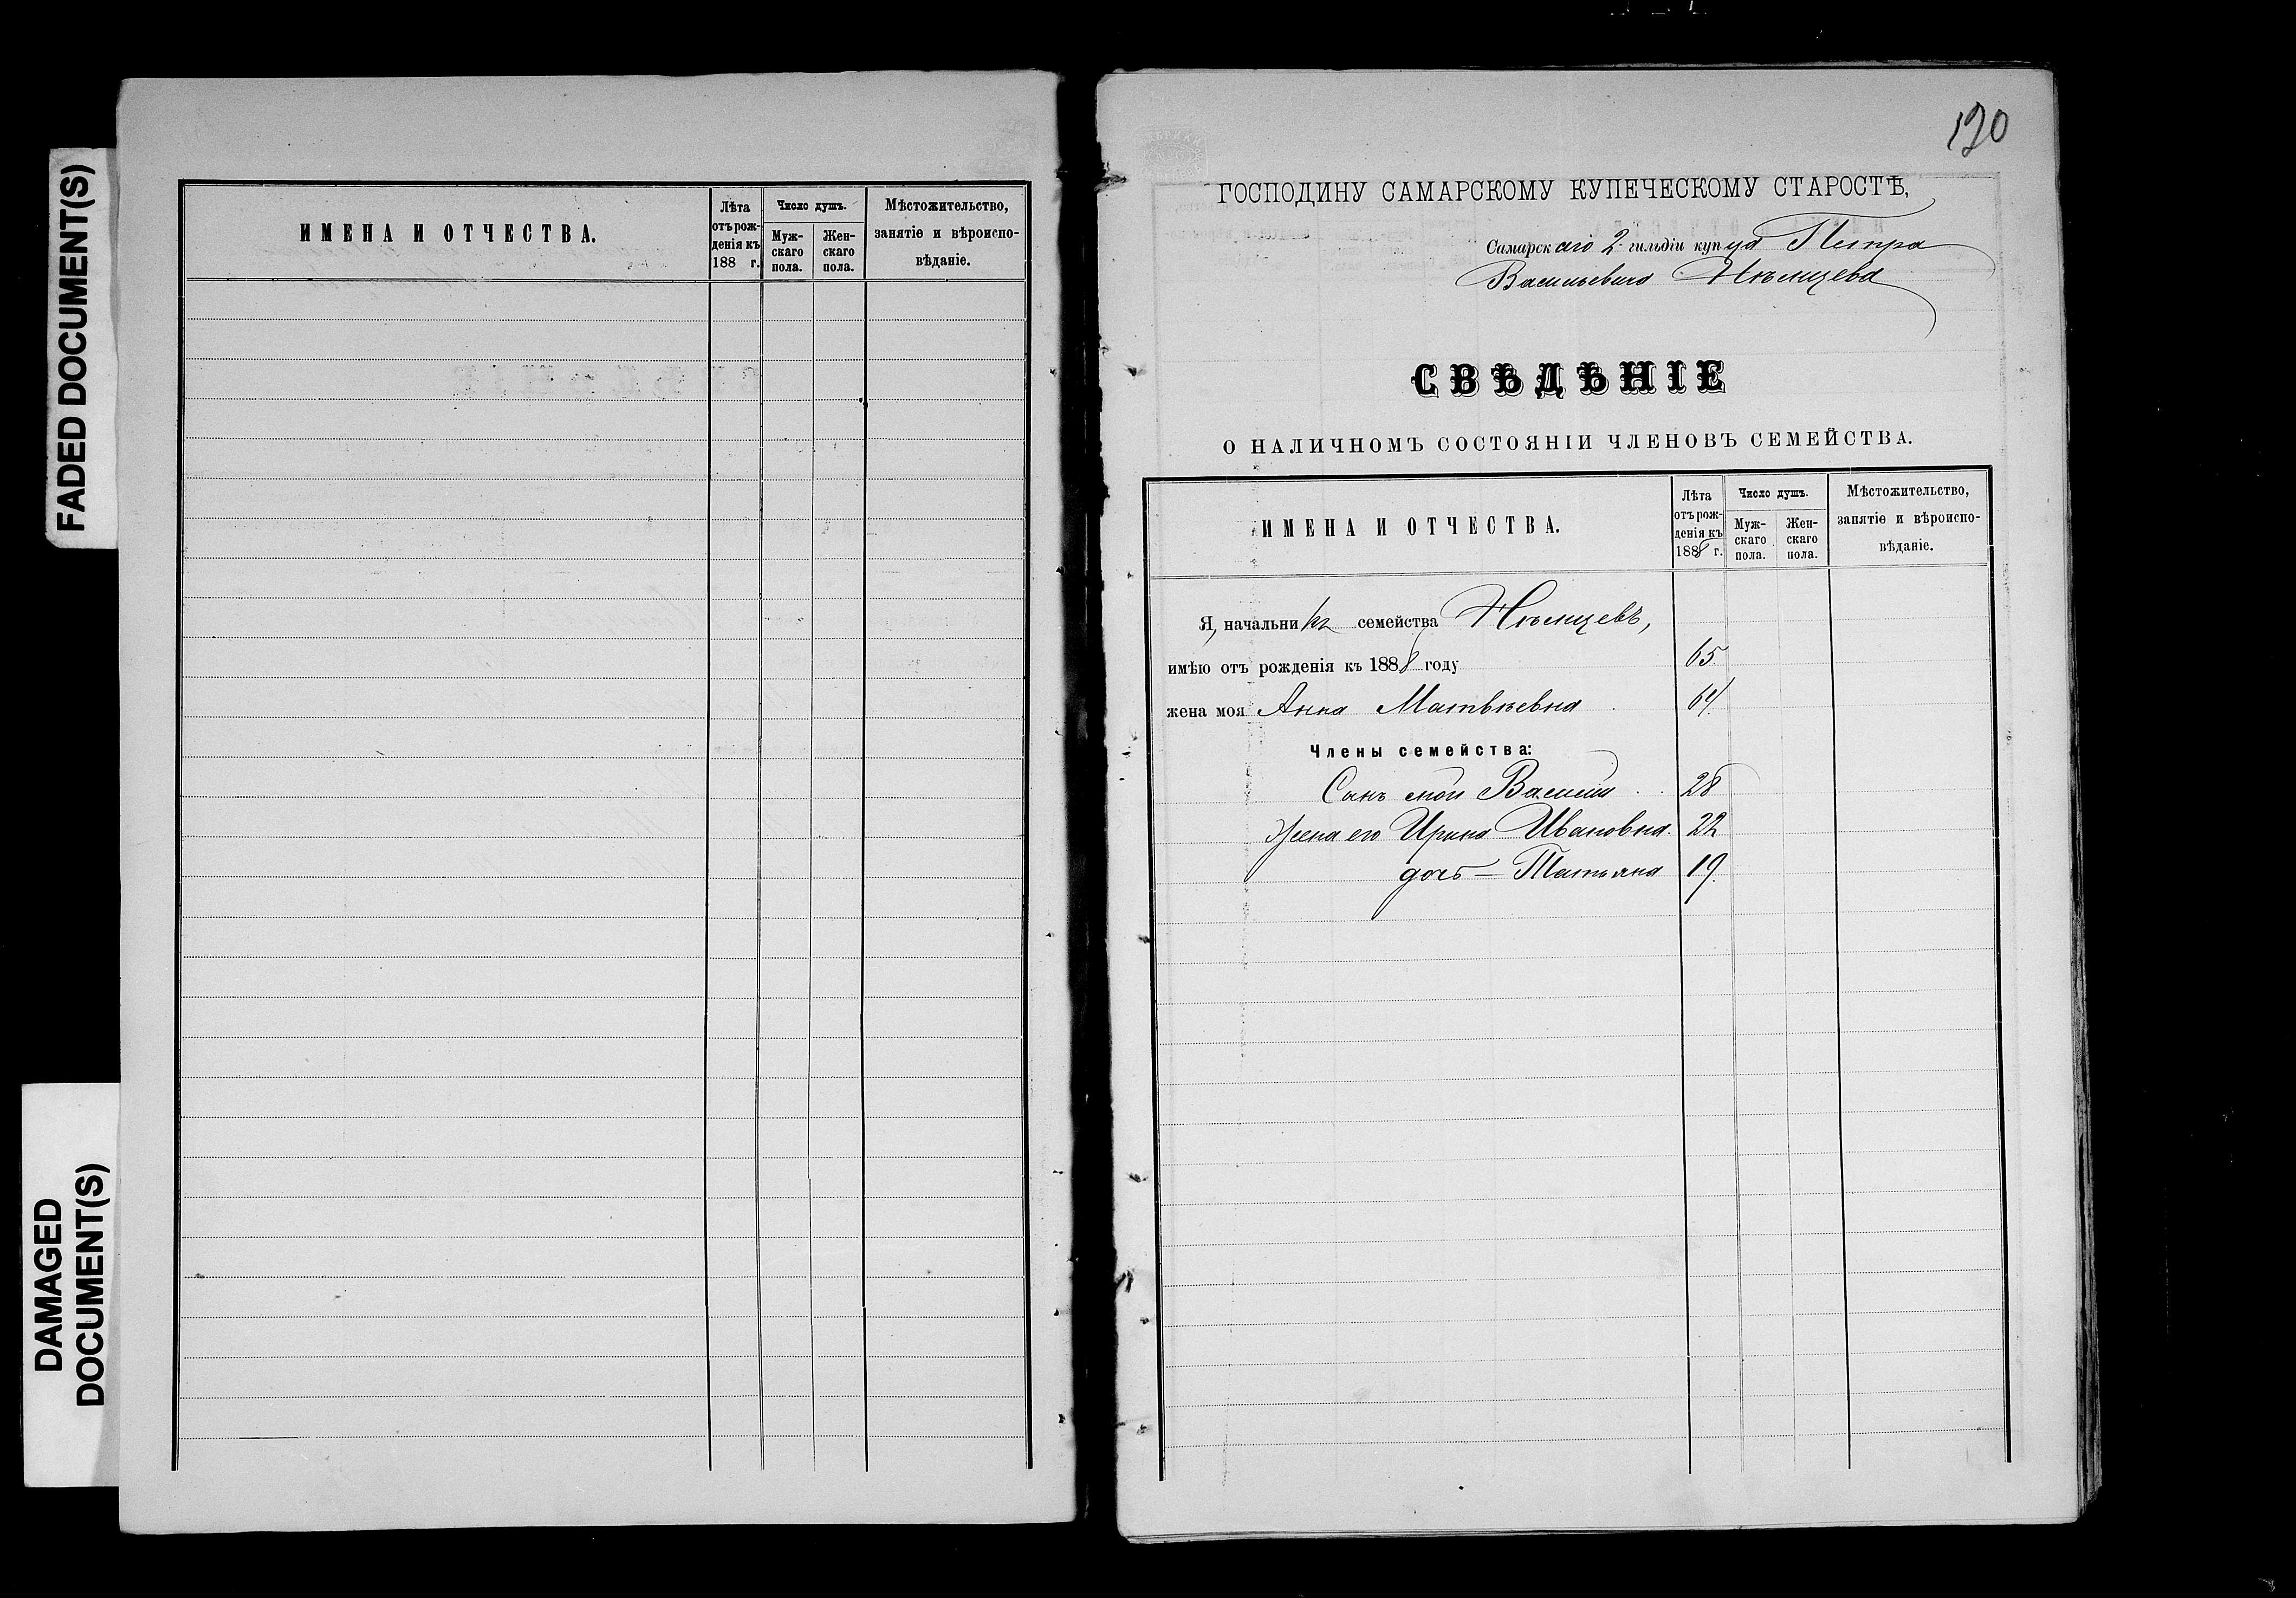 FADED DOCUMENT(S)
DAMAGED
DOCUMENT(S)
ИМЕНА И ОТЧЕСТВА.
Лѣта
отъ рож-
денія къ
188 г.
Число душъ.
Муж-
скаго
пола.
Жен-
скаго
пола.
Мѣстожительство,
занятіе и вѣроиспо-
вѣданіе.
190
ГОСПОДИНУ САМАРСКОМУ КУПЕЧЕСКОМУ СТАРОСТѢ,
Самарскаго 2 гильдіи купца Петра
Васильевича Нѣмцева
СВѢДѢНІЕ
О НАЛИЧНОМЪ СОСТОЯНІИ ЧЛЕНОВЪ СЕМЕЙСТВА.
ИМЕНА И ОТЧЕСТВА.
Лѣта
отъ рож-
денія къ
1888 г.
Число душъ.
Муж-
скаго
пола.
Жен-
скаго
пола.
Мѣстожительство,
занятіе и вѣроиспо-
вѣданіе.
Я, начальникъ семейства Нѣмцевъ,
имѣю отъ рожденія къ 1888 году 65
жена моя Анна Матвѣевна 64
Члены семейства:
Сынъ мой Василій 28
Жена его Ирина Ивановна 22
дочь — Татьяна 19